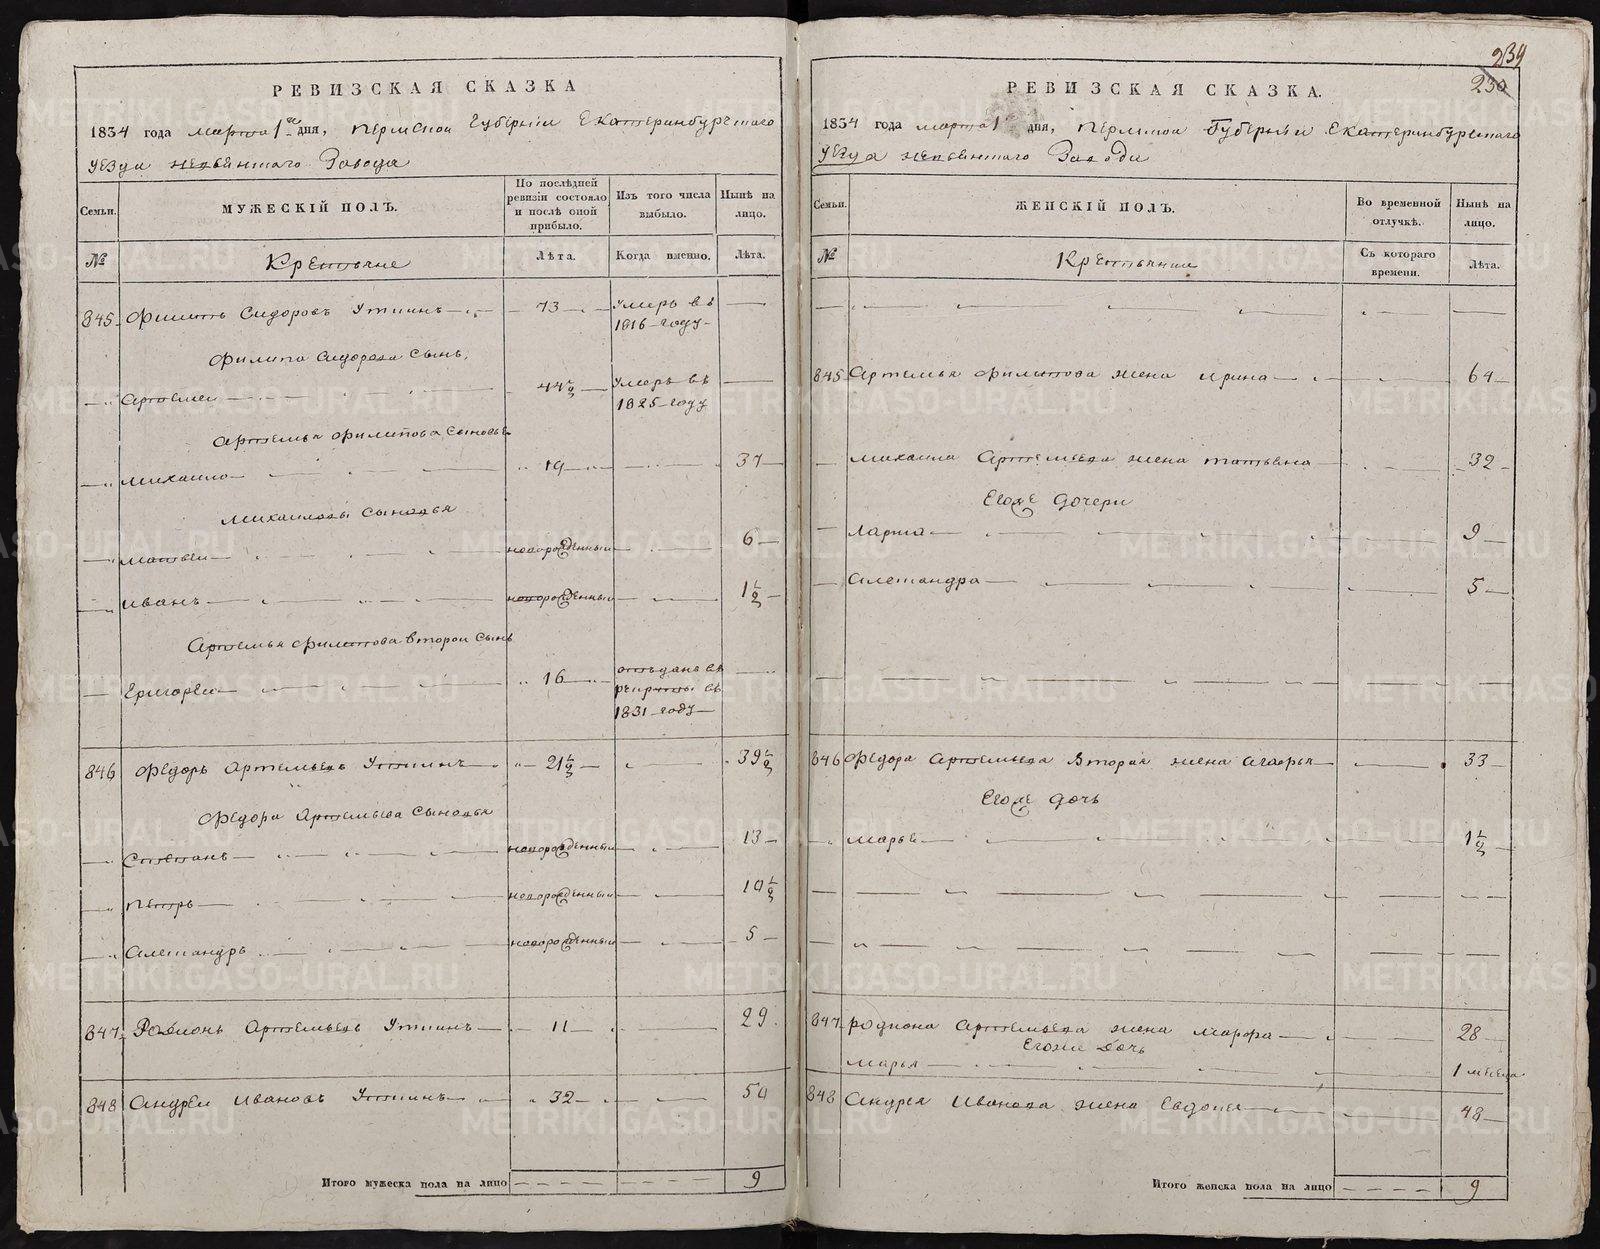 239
230
РЕВИЗСКАЯ СКАЗКА
1834 года марта 1го дня, Пермской Губернии Екатеринбургскаго
уезда невьянскаго Завода
Семьи.
МУЖЕСКІЙ ПОЛЪ.
По послѣдней ревизіи состояло и послѣ оной прибыло.
Изъ того числа выбыло.
Нынѣ на лицо.
№
Крестьяне
Лѣта.
Когда именно.
Лѣта.
845 Филипъ Сидоровъ Уткинъ 73 Умеръ въ
1816 году
Филипа Сидорова сынъ,
Артемеи 44½ Умеръ въ
1825 году
Артемья Филипова сыновья
Михаило 19 37
Михаиловы сыновья
Матвеи новорожденныи 6
Иванъ новорожденныи 1½
Артемья Филипова второи сынъ
Григореи 16 отъданъ въ
рекруты въ
1831 году
846 Федоръ Артемьевъ Уткинъ 21½ 39½
Федора Артемьева сыновья
Степанъ новорожденныи 13
Петръ новорожденныи 10½
Александръ новорожденныи 5
847 Родионъ Артемьевъ Уткинъ 11 29
848 Андреи Ивановъ Уткинъ 32 50
Итого мужеска пола на лицо 9
РЕВИЗСКАЯ СКАЗКА.
1834 года марта 1 дня, Пермской Губернии Екатеринбургскаго
уезда невьянскаго Завода
Семьи.
ЖЕНСКІЙ ПОЛЪ.
Во временной отлучкѣ.
Нынѣ на лицо.
№
Крестьянки
Съ котораго времени.
Лѣта.
845 Артемья Филипова жена Ирина 64
Михаила Артемьева жена Татьяна 32
Егоже дочери
Марфа 9
Александра 5
846 Федора Артемьева Вторая жена Агафья 33
Егоже дочь
Марья 1½
847 Родиона Артемьева жена Марфа 28
Егоже дочь
Марья 1 месеца
848 Андрея Иванова жена Евдокея 48
Итого женска пола на лицо 9
METRIKI.GASO-URAL.RU